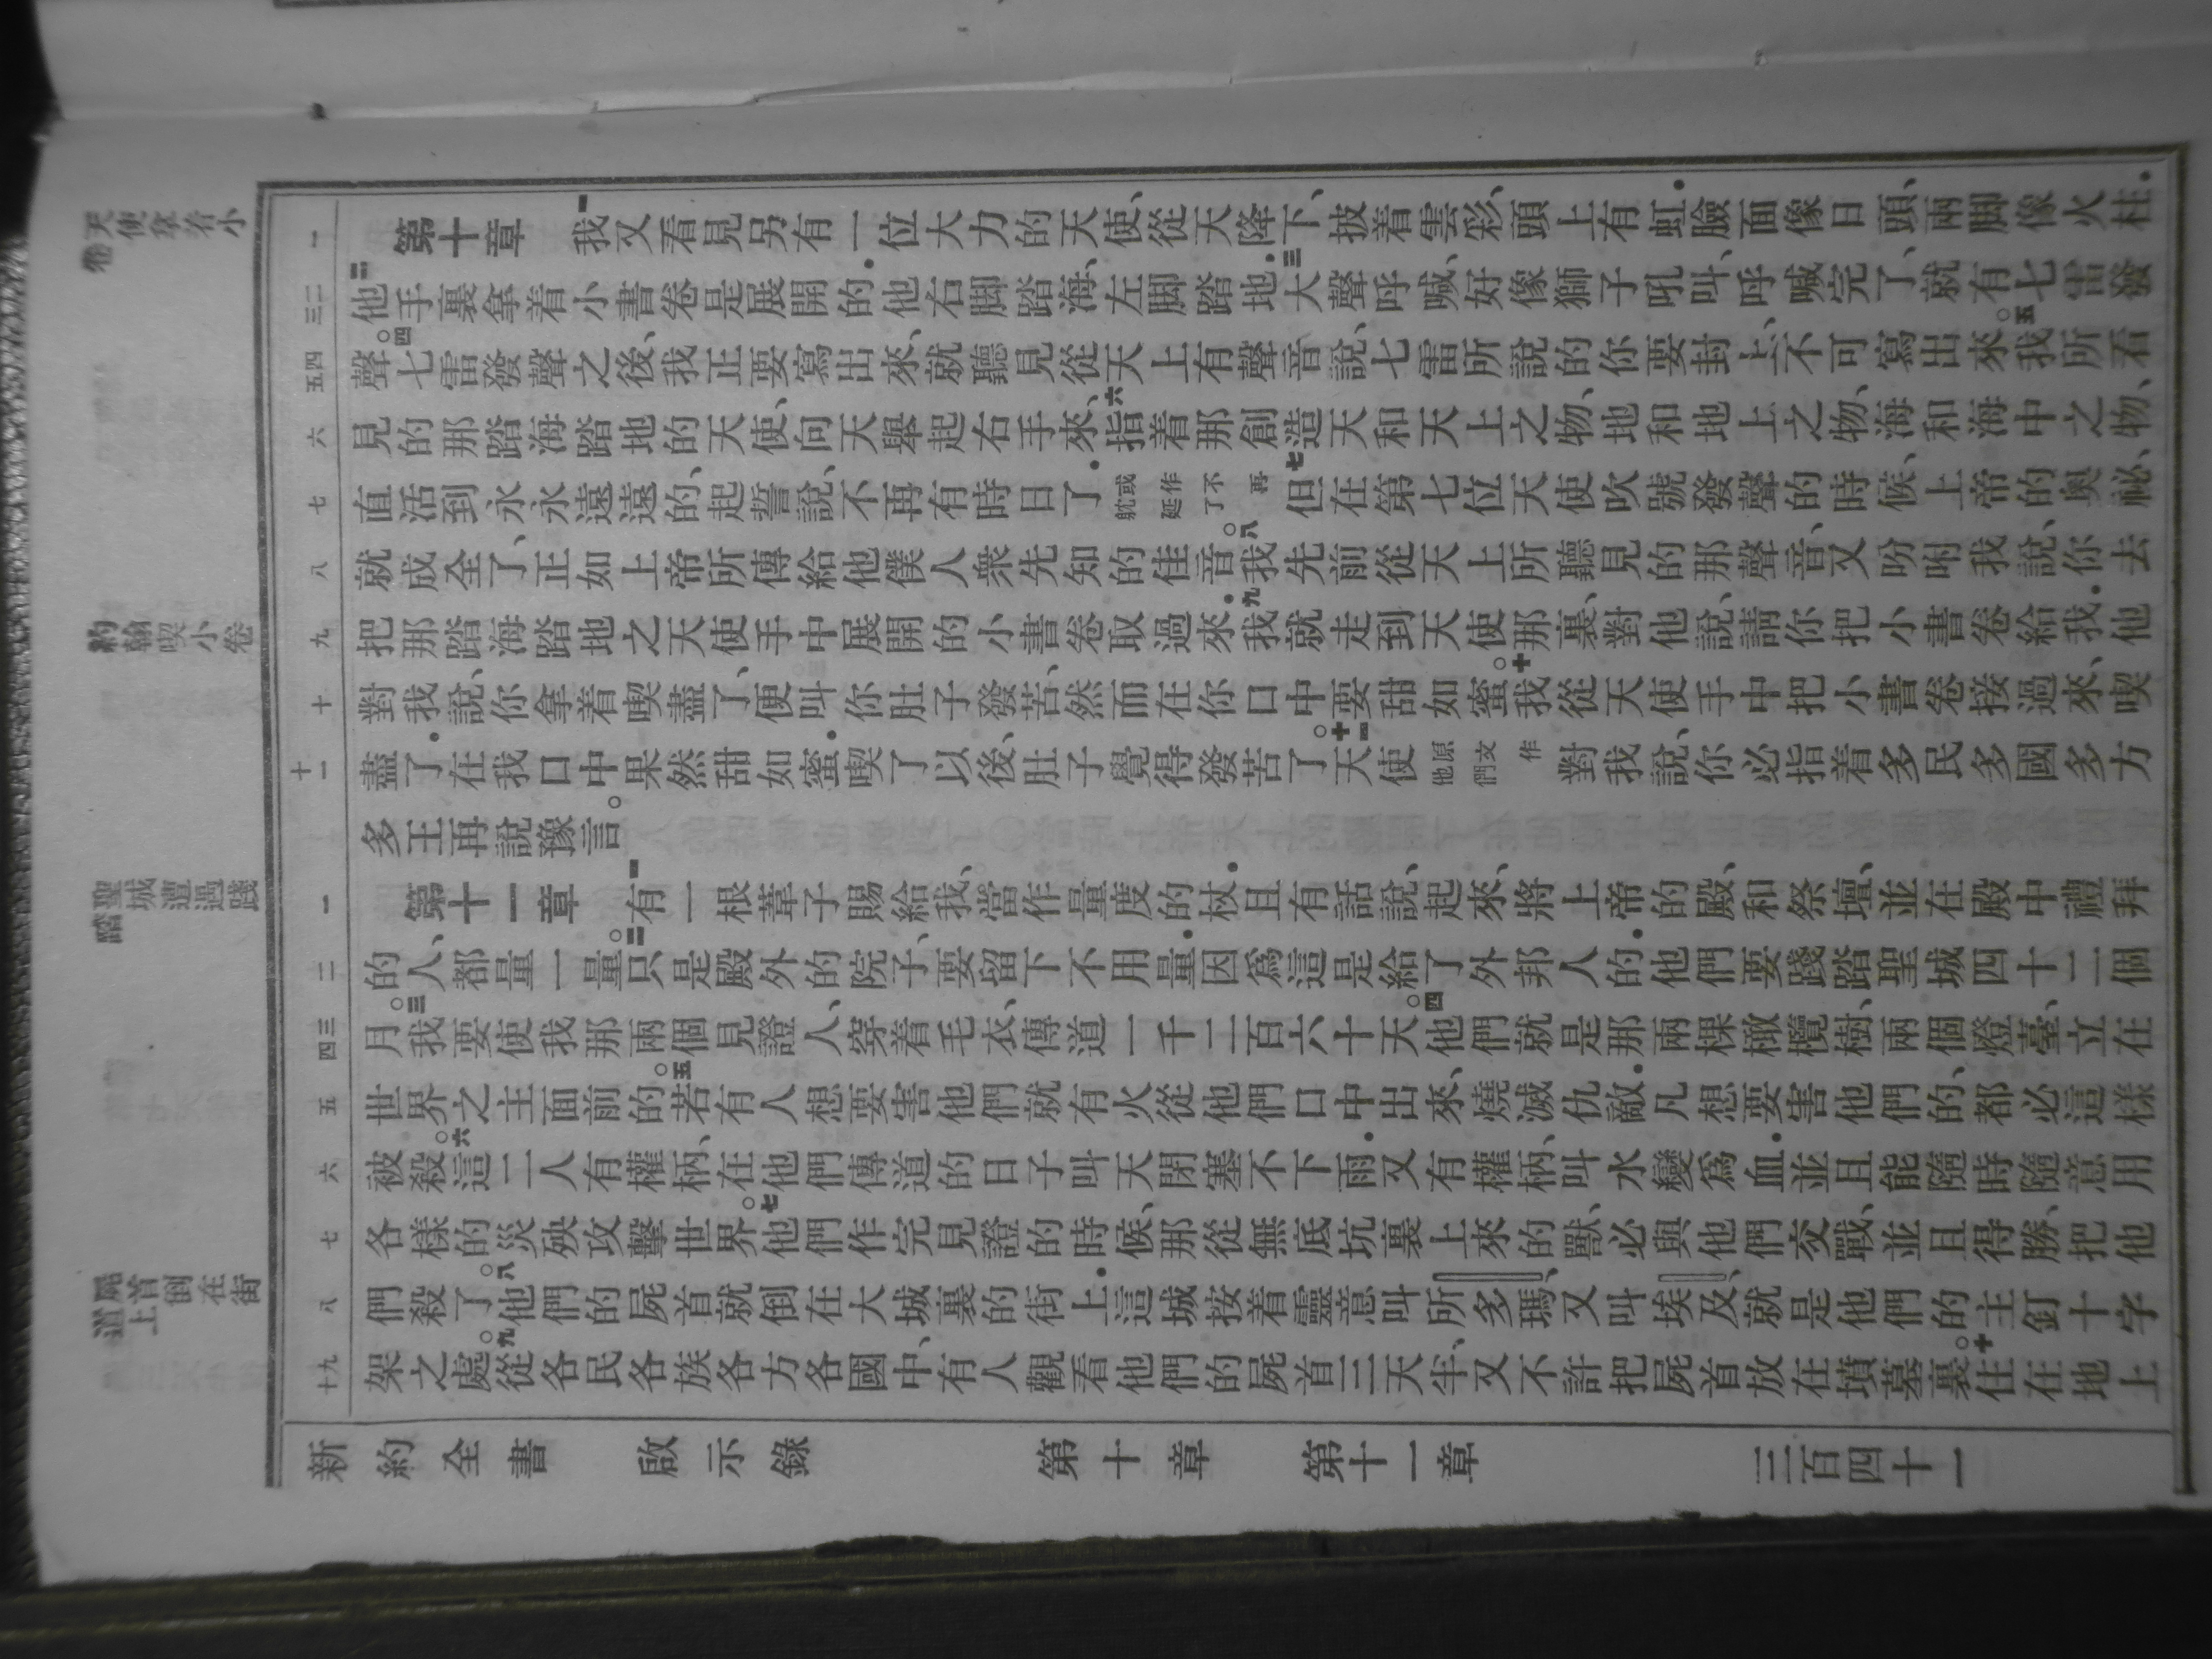 天使拿着小卷
約翰喫小卷
聖城遭遇踐踏
屍首倒在街道上
一
三二
五四
六
七
八
九
十
十一
一
二
四三
五
六
七
八
十九
第十章 一我又看見另有一位大力的天使、從天降下、披着雲彩、頭上有虹．臉面像日頭、兩腳像火柱．
二他手裏拿着小書卷是展開的．他右腳踏海、左腳踏地．三大聲呼喊、好像獅子吼叫、呼喊完了、就有七雷發
聲。四七雷發聲之後、我正要寫出來、就聽見從天上有聲音說、七雷所說的你要封上、不可寫出來。五我所看
見的那踏海踏地的天使、向天舉起右手來、六指着那創造天和天上之物、地和地上之物、海和海中之物、
直活到永永遠遠的、起誓說、不再有時日了．或作不再躭延了七但在第七位天使吹號發聲的時候、上帝的奧祕、
就成全了、正如上帝所傳給他僕人衆先知的佳音。八我先前從天上所聽見的那聲音、又吩咐我說、你去
把那踏海踏地之天使手中展開的小書卷取過來．九我就走到天使那裏、對他說、請你把小書卷給我．他
對我說、你拿着喫盡了、便叫你肚子發苦、然而在你口中要甜如蜜。十我從天使手中把小書卷接過來、喫
盡了．在我口中果然甜如蜜．喫了以後、肚子覺得發苦了。十一天使原文作他們對我說、你必指着多民多國多方
多王再說豫言。
第十一章 一有一根葦子賜給我、當作量度的杖．且有話說、起來、將上帝的殿、和祭壇、並在殿中禮拜
的人、都量一量。二只是殿外的院子、要留下不用量．因爲這是給了外邦人的．他們要踐踏聖城四十二個
月。三我要使我那兩個見證人、穿着毛衣、傳道一千二百六十天。四他們就是那兩棵橄欖樹、兩個燈臺、立在
世界之主面前的。五若有人想要害他們、就有火從他們口中出來、燒滅仇敵．凡想要害他們的、都必這樣
被殺。六這二人有權柄、在他們傳道的日子叫天閉塞不下雨．又有權柄、叫水變爲血．並且能隨時隨意用
各樣的災殃攻擊世界。七他們作完見證的時候、那從無底坑裏上來的獸、必與他們交戰、並且得勝、把他
們殺了。八他們的屍首就倒在大城裏的街上．這城按着靈意叫所多瑪、又叫埃及、就是他們的主釘十字
架之處。九從各民各族各方各國中、有人觀看他們的屍首三天半、又不許把屍首放在墳墓裏。十住在地上
新約全書 啟示錄 第十章 第十一章 三百四十一